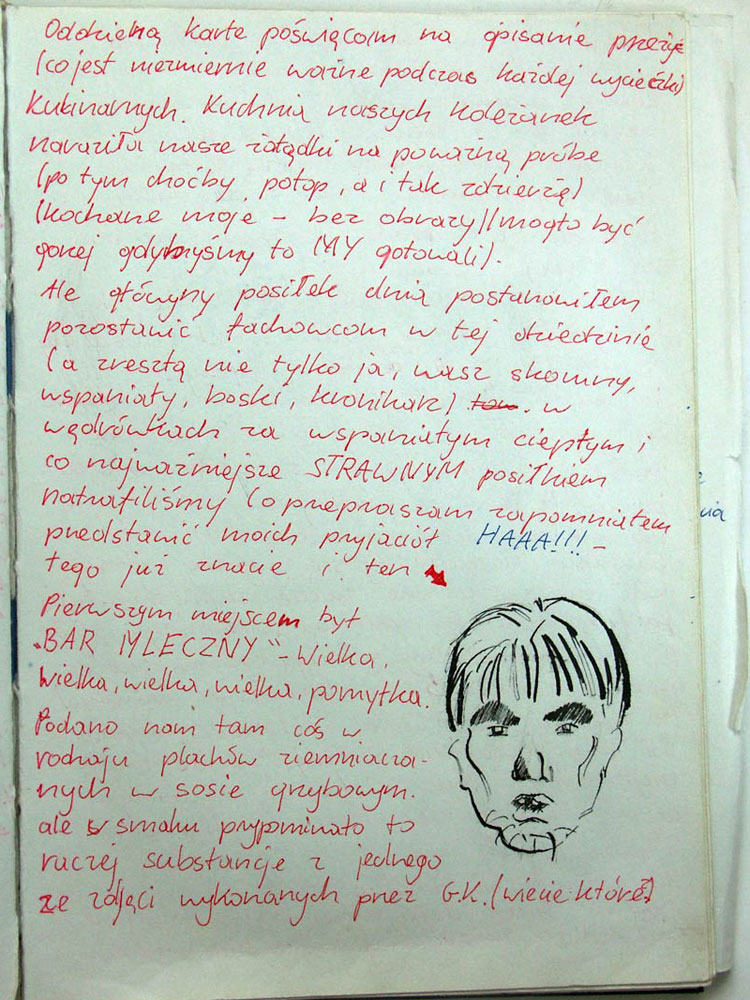 Oddzielną kartę poświęcam na opisanie przeżyć
(co jest niezmiernie ważne podczas każdej wycieczki)
kulinarnych. Kuchnia naszych koleżanek
naraziła nasze żołądki na poważną próbę
(po tym choćby potop, a i tak zdzierżę)
(kochane moje - bez obrazy)(mogło być
gorzej gdybyśmy to MY gotowali).
Ale główny posiłek dnia postanowiłem
pozostawić fachowcom w tej dziedzinie
(a zresztą nie tylko ja, wasz skromny,
wspaniały, boski, kronikarz) w
wędrówkach za wspaniałym ciepłym i
co najważniejsze STRAWNYM posiłkiem
natrafiliśmy (o przepraszam zapomniałem
przedstawić moich przyjaciół HAAA!!! -
tego już znacie i ten
Pierwszym miejscem był
„BAR MLECZNY" - Wielka,
wielka, wielka, wielka, pomyłka.
Podano nam tam coś w
rodzaju placków ziemniacza-
nych w sosie grzybowym.
ale w smaku przypominało to
raczej substancje z jednego
ze zdjęci wykonanych przez G.K. (wiecie które?)
nia